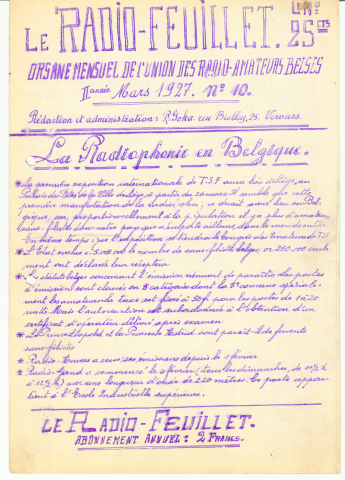 LE RADIO-FEUILLET. LE Nº 25 CTS
ORGANE MENSUEL DE L'UNION DES RADIO-AMATEURS BELGES
II année Mars 1927. Nº 10.
Rédaction et administration: R. rue Biolley, 25. Verviers.
La Radiophonie en Belgique.
* La première exposition internationale de T.S.F aura lieu à Liège, au
Palais des Fêtes de la Ville de Liège, à partir du 20 mars. Il semble que cette
première manifestation de la devait avoir lieu en Bel-
gique, car, proportionnellement à la population il y a plus d'amateurs
sans-filistes dans notre pays que n'importe ailleurs dans le monde entier
En même temps que l'exposition se tiendra le Congrès des
* L'État évalue à le nombre de sans-filistes belges, or 200.000 seule-
ment ont déclaré leur récepteur
* Les statuts belges concernant l'émission viennent de paraître, les postes
d'émission sont classés en 5 catégories dont la 5e concerne spéciale-
ment les amateurs la taxe est fixée à 50F pour les postes de 1 à 20
watts mais l'autorisation est subordonnée à l'obtention d'un
certificat d'opérateur délivré après examen
* Le Prince Léopold et la Princesse Astrid sont paraît-il de fervents
sans-filistes
* Radio-Anvers a ses émissions depuis le février
* Radio-Gand a commencé le février (tous les dimanches, de 10½ h
à 12½ h) avec une longueur d'onde de 220 mètres. Ce poste appar-
tient à l'École Industrielle supérieure.
LE RADIO-FEUILLET.
ABONNEMENT ANNUEL: 2 FRANCS.